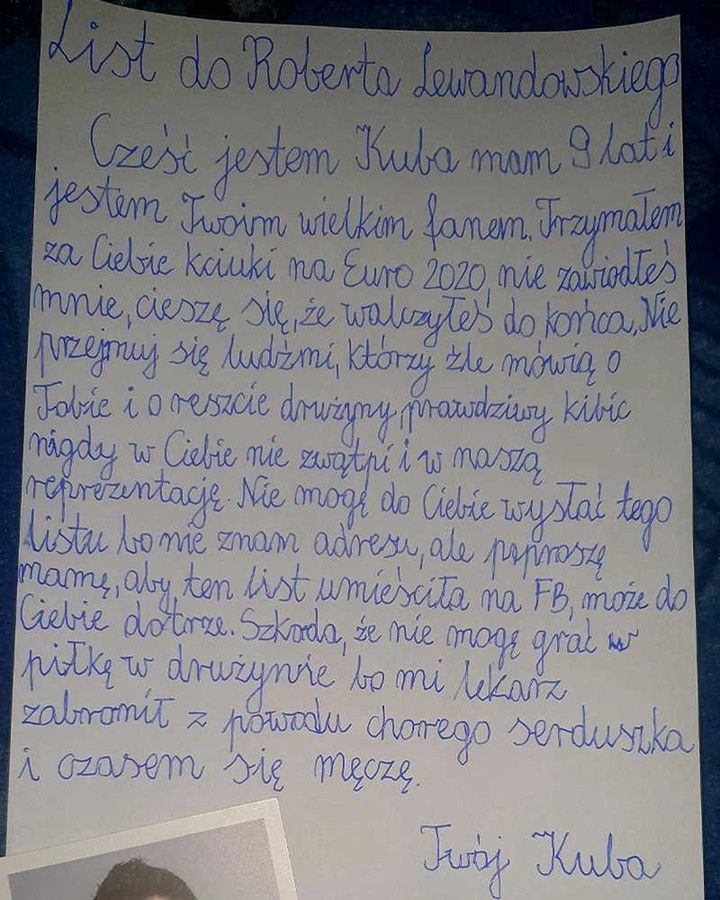 List do Roberta Lewandowskiego
Cześć jestem Kuba mam 9 lat i
jestem Twoim wielkim fanem. Trzymałem
za Ciebie kciuki na Euro 2020, nie zawiodłeś
mnie, cieszę się, że walczyłeś do końca. Nie
przejmuj się ludźmi, którzy źle mówią o
Tobie i o reszcie drużyny, prawdziwy kibic
nigdy w Ciebie nie zwątpi i w naszą
reprezentację. Nie mogę do Ciebie wysłać tego
listu bo nie znam adresu, ale poproszę
mamę, aby ten list umieściła na FB, może do
Ciebie dotrze. Szkoda, że nie mogę grać w
piłkę w drużynie bo mi lekarz
zabronił z powodu chorego serduszka
i czasem się męczę.
Twój Kuba